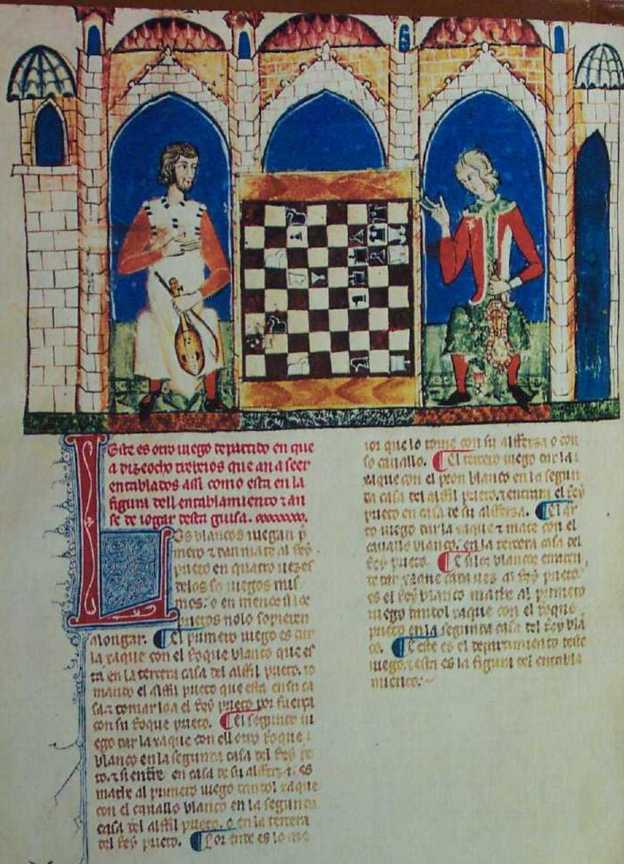 Este es otro iuego departido en que
a diz e ocho trebeios que an a seer
entablados assi como esta en la
figura dell entablamiento τ an
se de iogar desta guisa.
Los blancos iuegan p
mero τ dan mate al Rey
prieto en quatro uezes
delos sos iuegos mis
mos. o en menos si los
prietos nolo sopieren
alongar. El primero iuego es dar
la xaque con el Roque blanco que es
ta en la tercera casa del alffil prieto. to
mando el alffil prieto que esta en su ca
sa. τ tomar loa el Rey prieto por fuerça
con su Roque prieto. El segundo iu
ego dar la xaque con ell otro Roque
blanco en la segunda casa del Rey pri
eto. τ si entrare en casa de su alfferza. es
mathe al primero iuego dandol xaque
con el cauallo blanco en la segunda
casa del alffil prieto. o en la tercera
del Rey prieto. Por ende es lo me
ior que lo tome con su alfferza o con
so cauallo. El tercero iuego dar la
xaque con el peon blanco en la segun
da casa del alffil prieto. τ entrara el Rey
prieto en casa de su alfferza. El quar
to iuego dar la xaque τ mate con el
cauallo blanco. en la tercera casa del
Rey prieto. E si los blancos
de dar xaque cada uez al Rey prieto.
es el Rey blanco mathe al primero
iuego dandol xaque con el Roque
prieto en la segunda casa del Rey blan
co. E este es el departimiento deste
iuego. τ esta es la figura del entabla
miento.